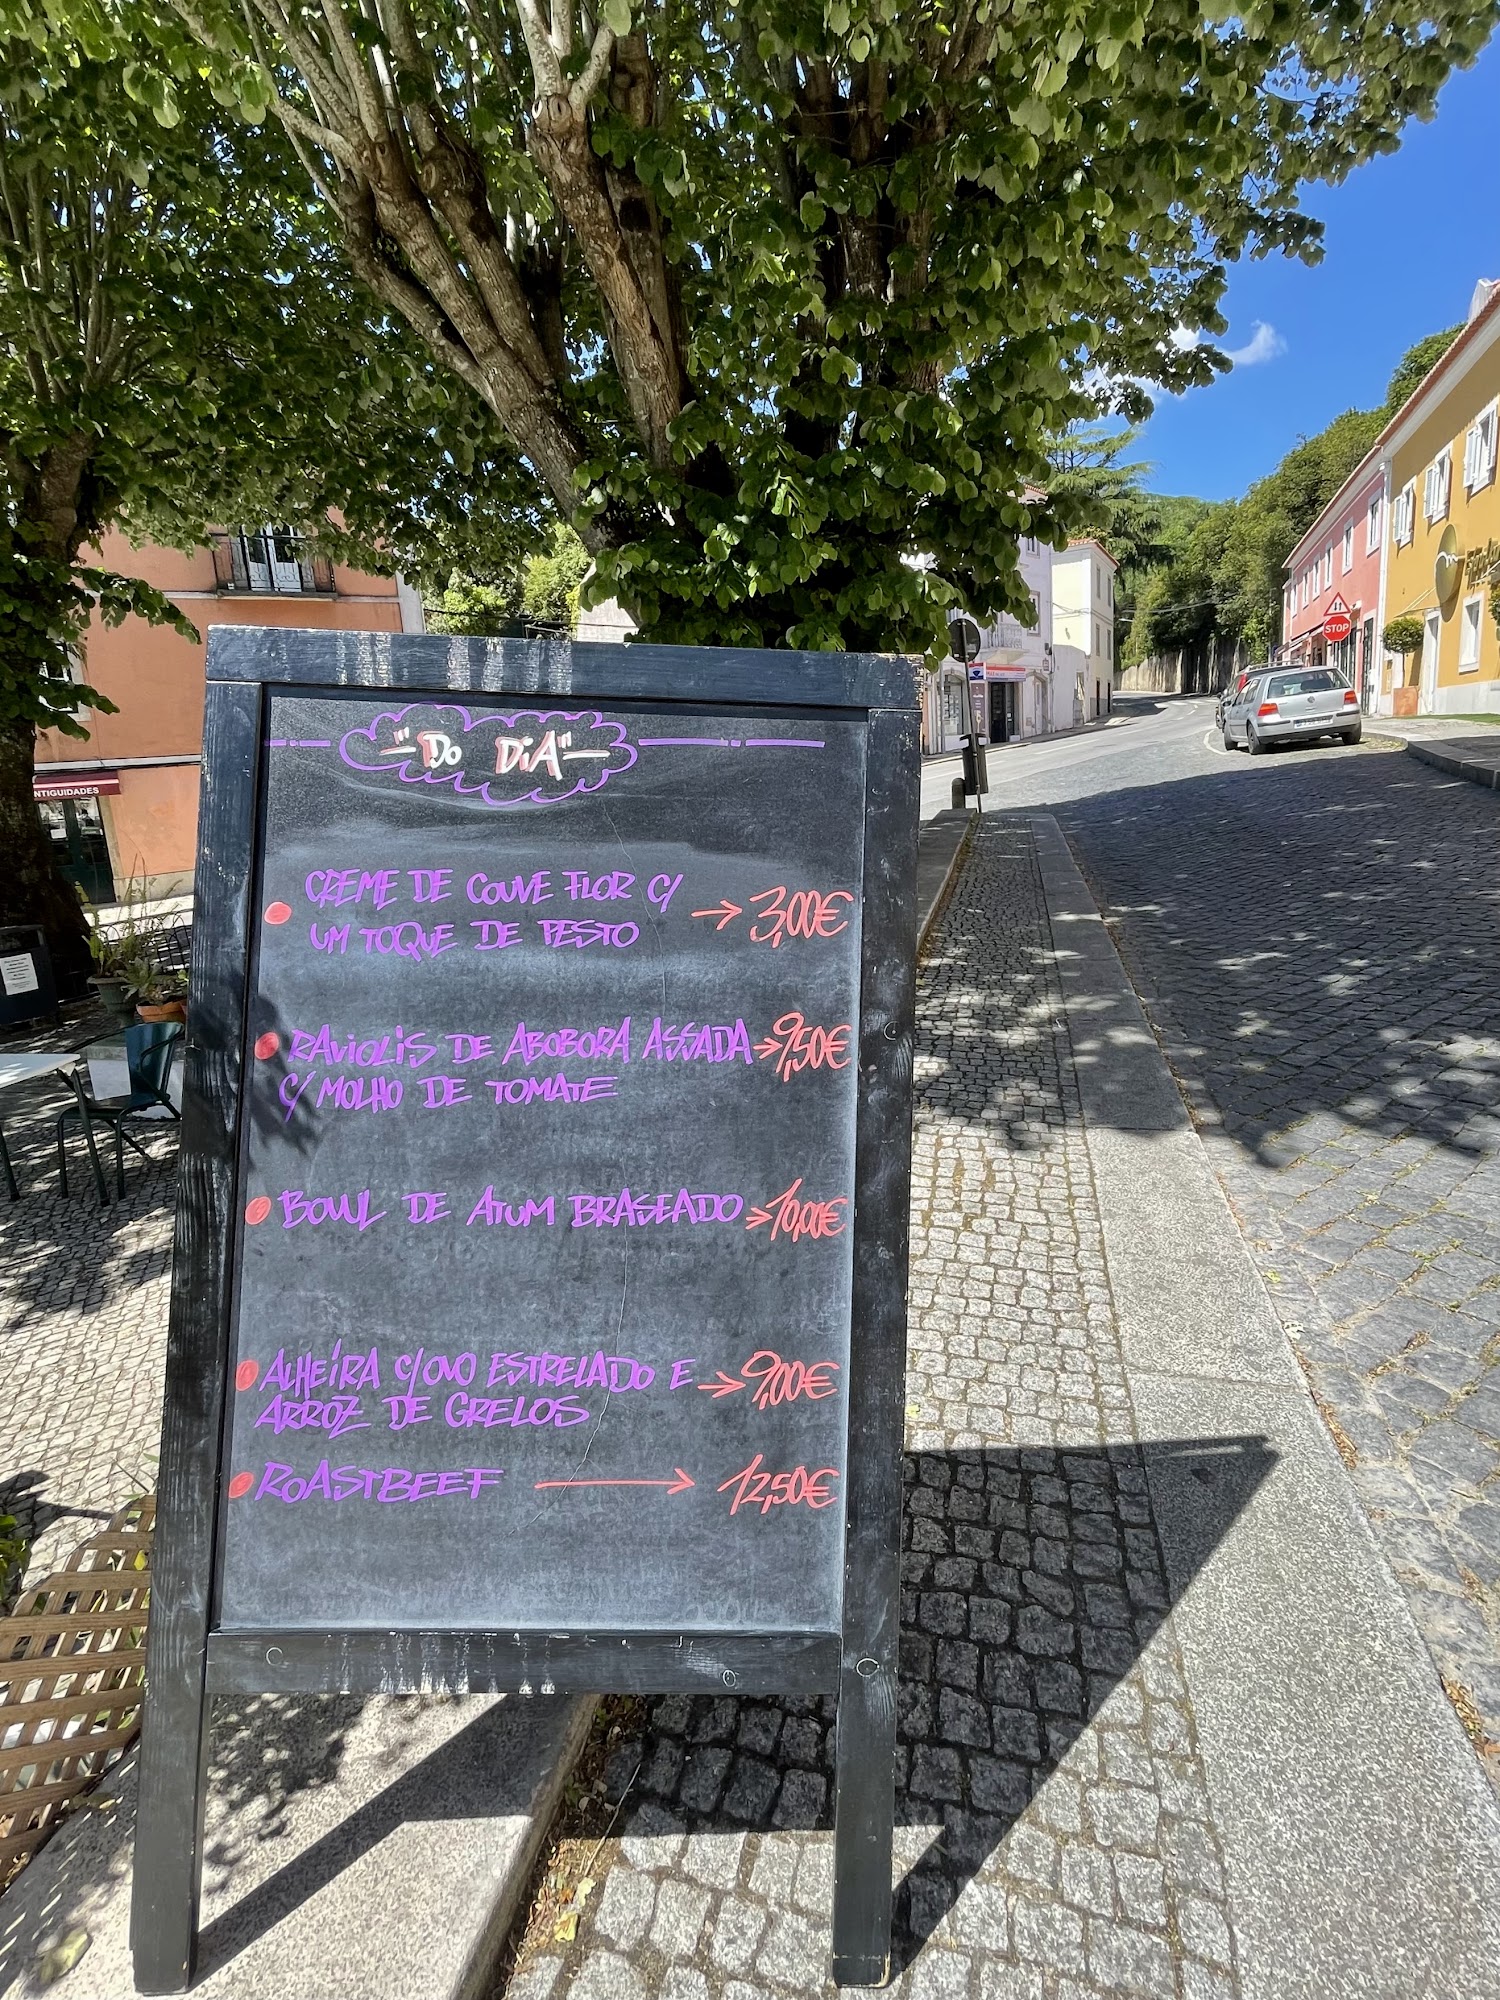 "Do DiA"
CREME DE COUVE FLOR C/
UM TOQUE DE PESTO → 3,00€
RAViOLiS DE ABOBORA ASSADA → 9,50€
C/ MOLHO DE TOMATE
BOWL DE ATUM BRASEADO → 10,00€
ALHEÍRA C/ OVO ESTRELADO E → 9,00€
ARROZ DE GRELOS
ROASTBEEF → 12,50€
NTIGUIDADES
STOP